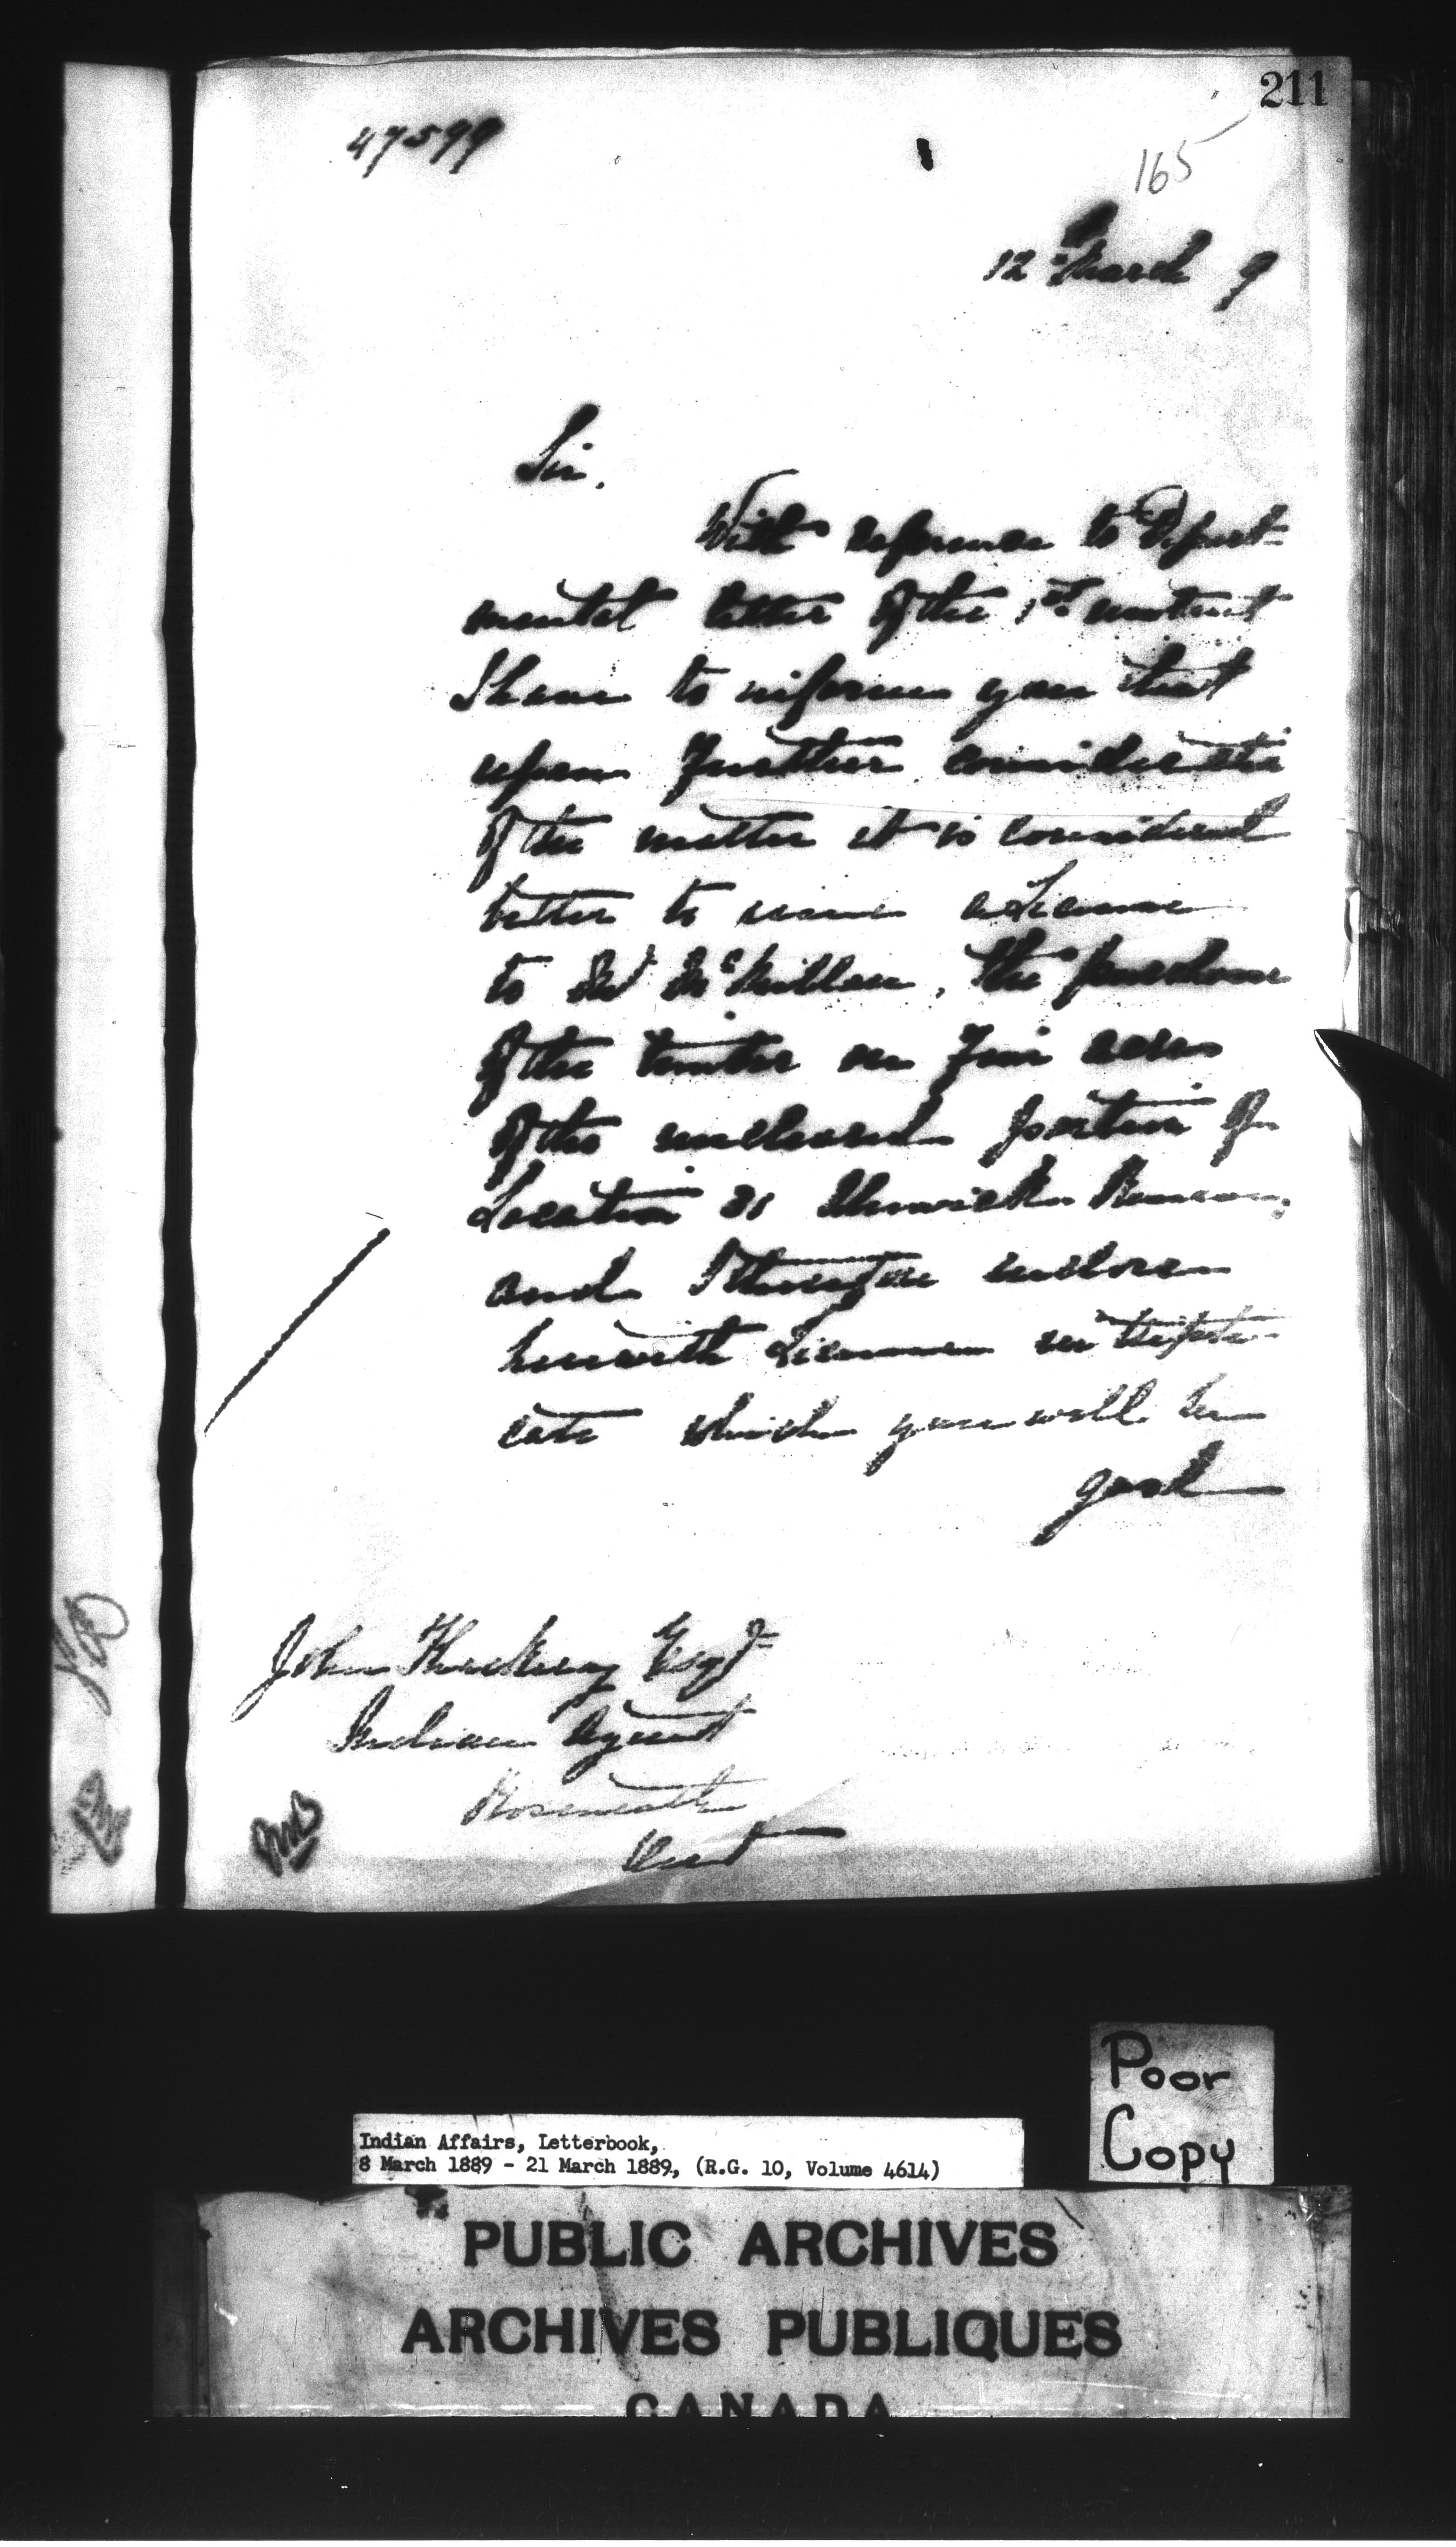 211
47599
165
12 March 9
Sir,
With reference to Depart-
mental letter of the 1st instant
I have to inform you that
upon further consideration
of the matter it is considered
better to issue a License
to Mr McMillan, the purchaser
of the timber on five acres
of the uncleared portion of
Location 31 Alnwick Reserve,
and I therefore enclose
herewith License in tripli-
cate which you will be
good
John Thackeray Esqr
Indian Agent
Roseneath
Ont
Poor
Copy
Indian Affairs, Letterbook,
8 March 1889 - 21 March 1889, (R.G. 10, Volume 4614)
PUBLIC ARCHIVES
ARCHIVES PUBLIQUES
CANADA